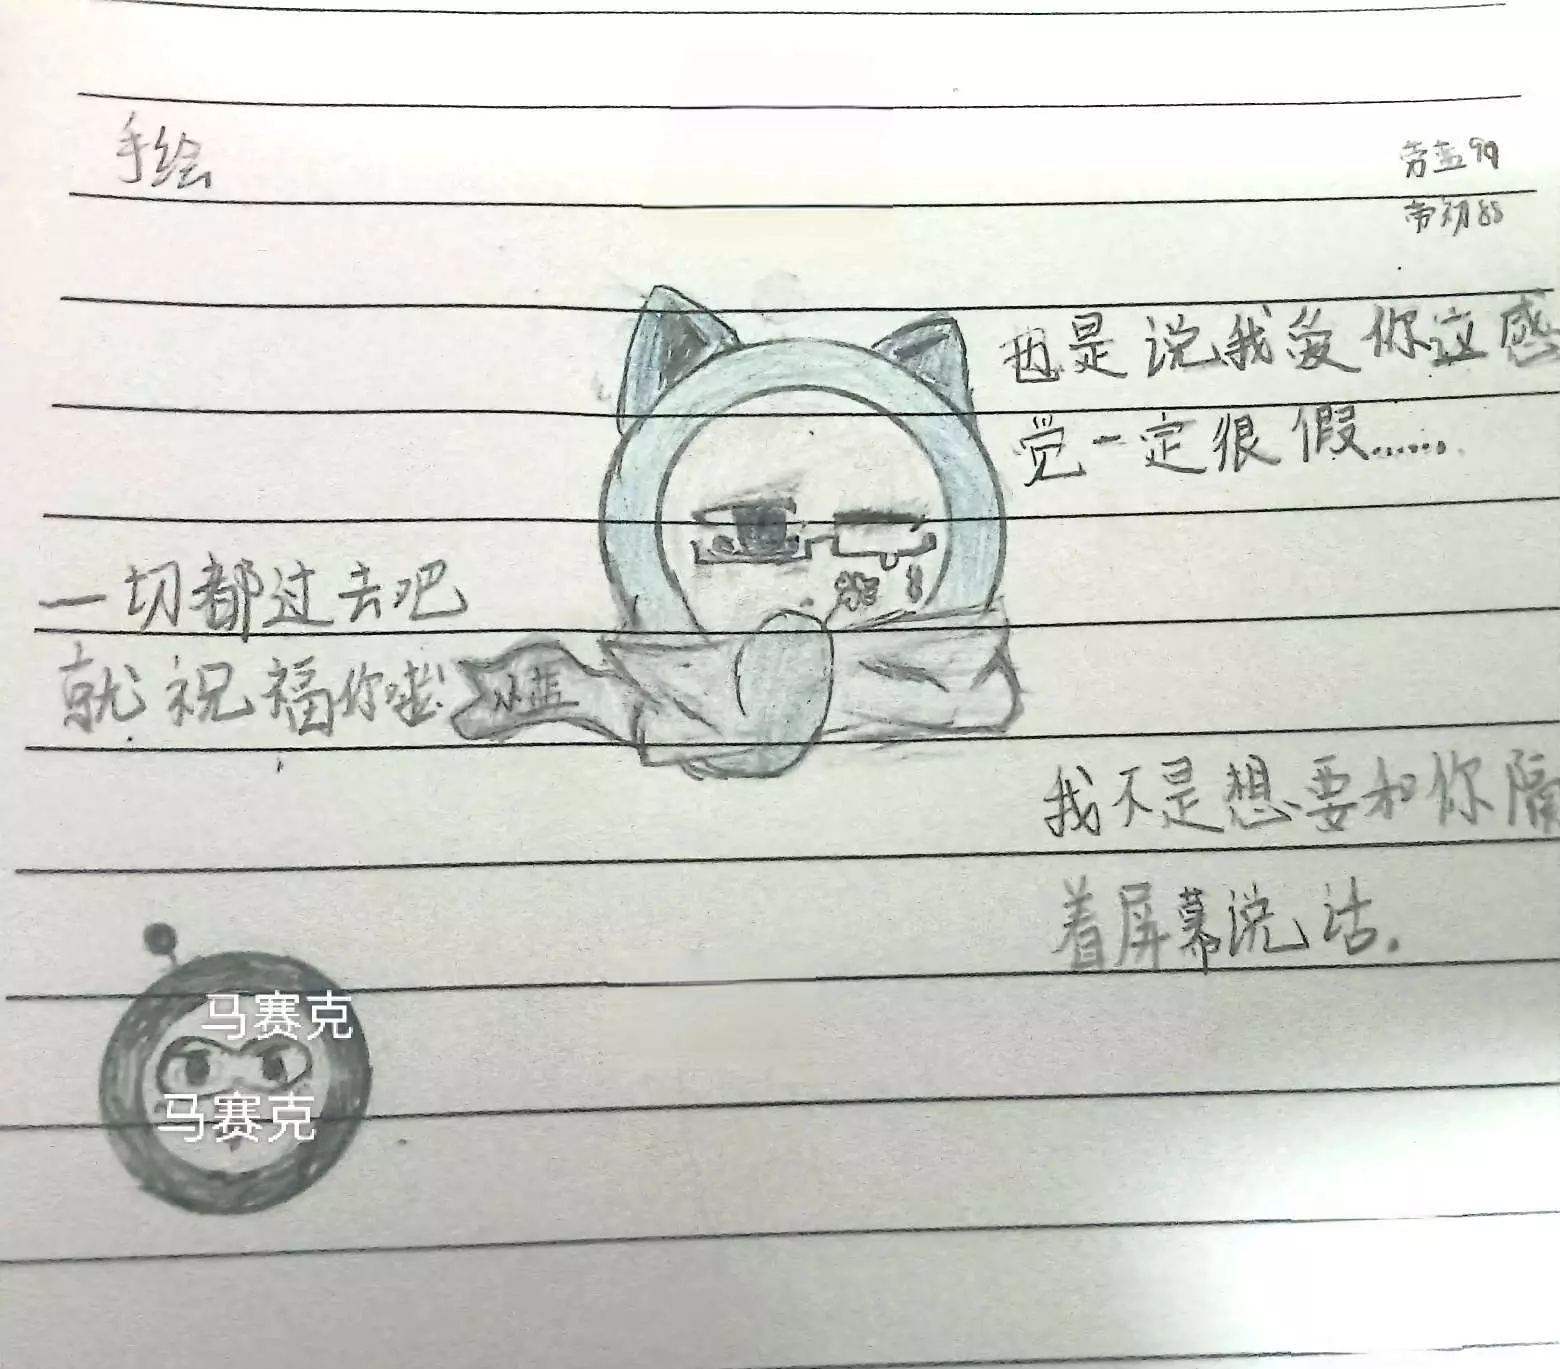 手绘
劳蓝99
带刃88
也是说我爱你这感
觉一定很假……
一切都过去吧
就祝福你啦
小蓝
我不是想要和你隔
着屏幕说话.
马赛克
马赛克